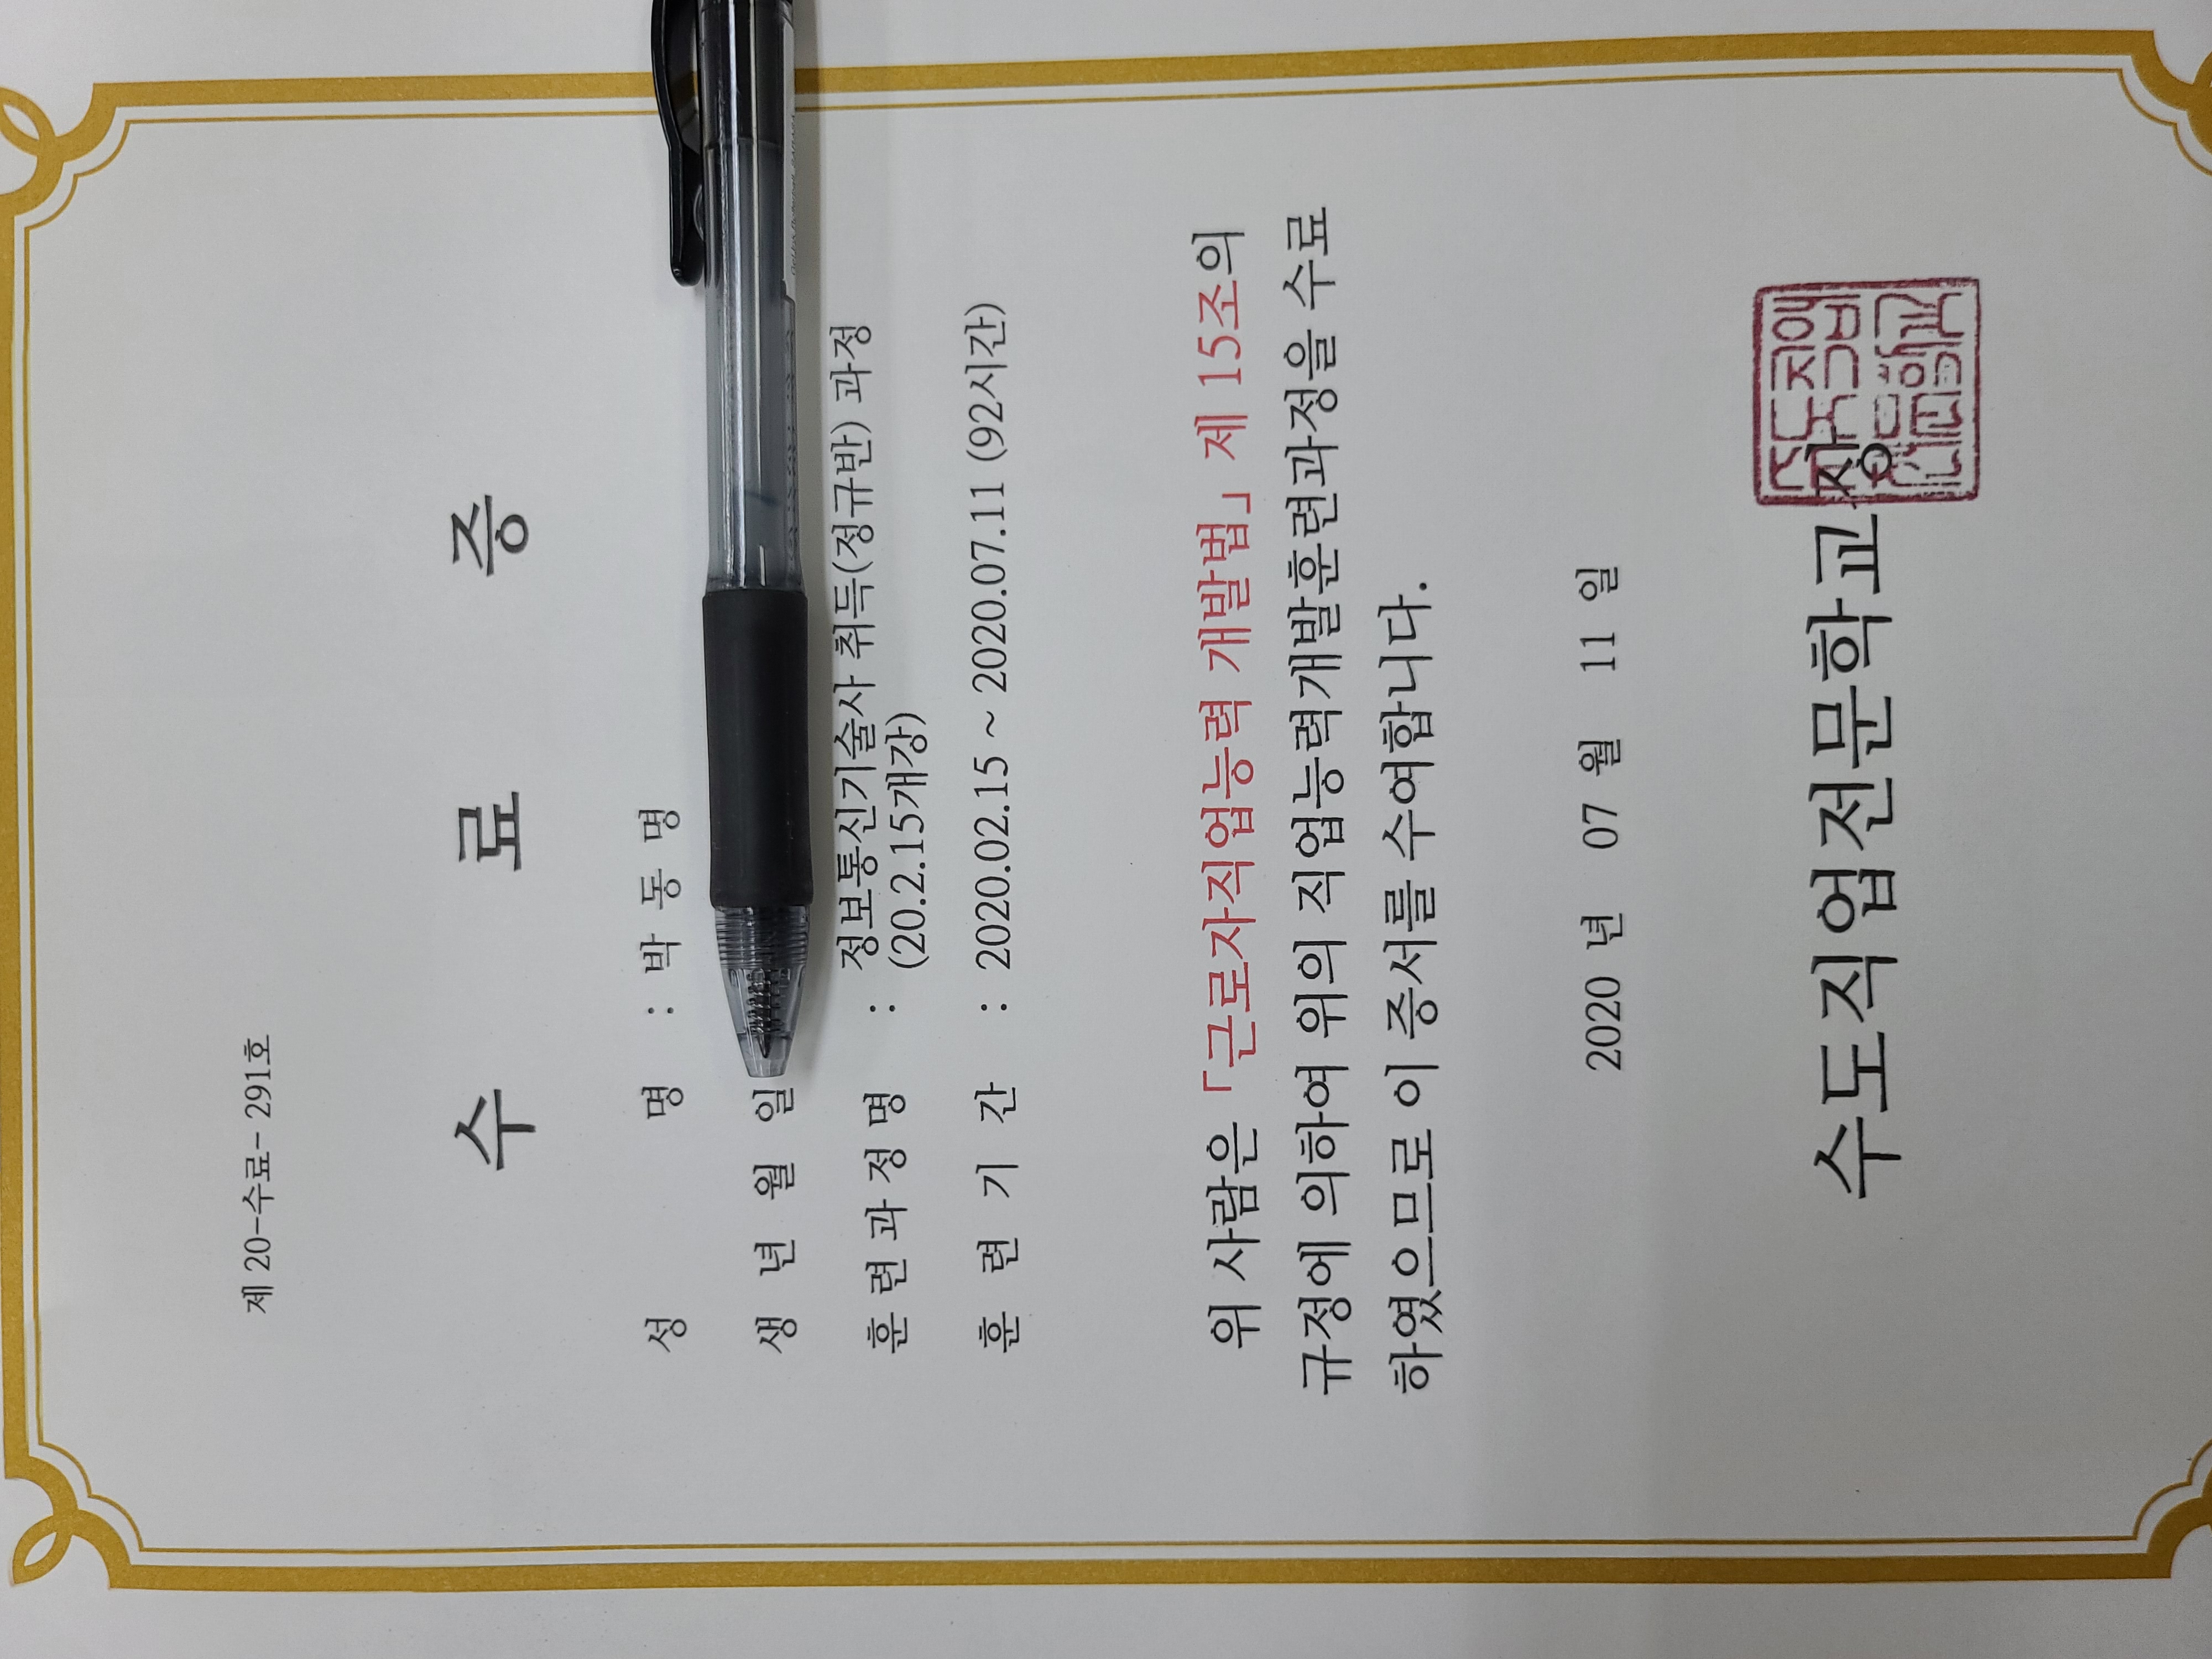 제 20-수료- 291호
수 료 증
성 명 : 박 동 명
생 년 월 일
훈 련 과 정 명 : 정보통신기술사 취득(정규반) 과정
(20.2.15개강)
훈 련 기 간 : 2020.02.15 ~ 2020.07.11 (92시간)
위 사람은 「근로자직업능력 개발법」 제 15조의
규정에 의하여 위의 직업능력개발훈련과정을 수료
하였으므로 이 증서를 수여합니다.
2020 년 07 월 11 일
수도직업전문학교장